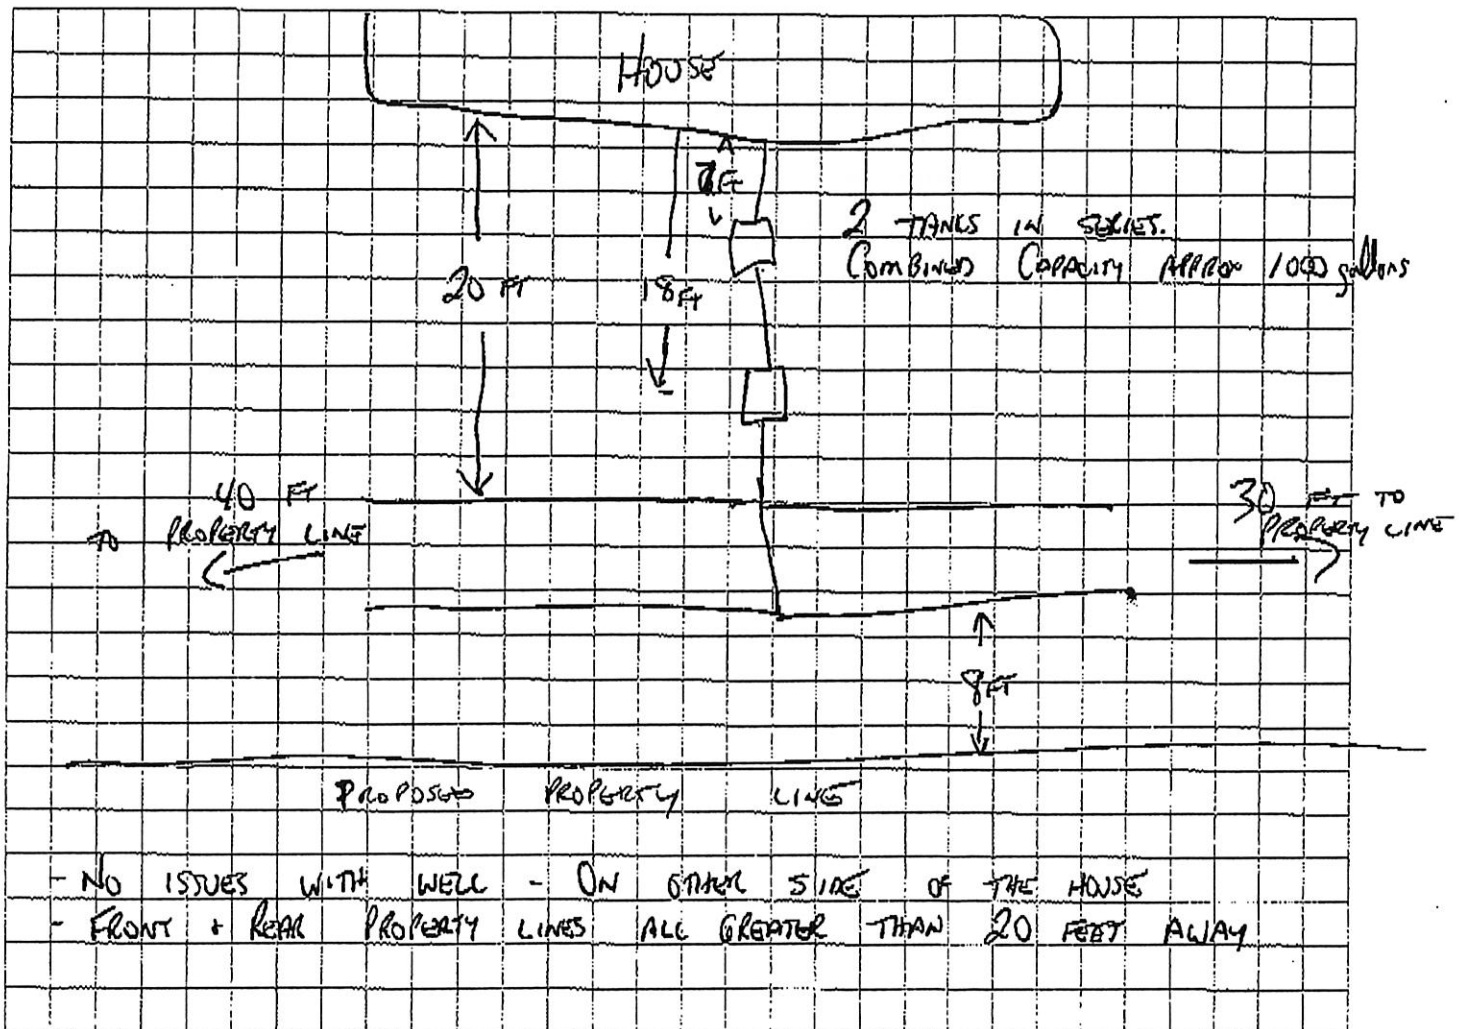 HOUSE
FT
2 TANKS IN SERIES.
COMBINED CAPACITY APPROX 1000 gallons
20 FT
18 FT
40 FT
TO PROPERTY LINE
30 FT TO
PROPERTY LINE
8 FT
PROPOSED PROPERTY LINE
- NO ISSUES WITH WELL - ON OTHER SIDE OF THE HOUSE
- FRONT + REAR PROPERTY LINES ALL GREATER THAN 20 FEET AWAY